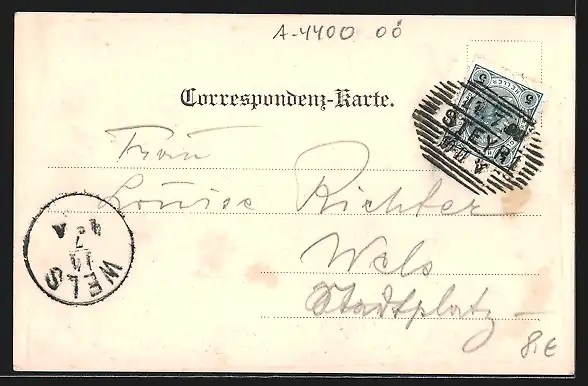 A-4400 OÖ
5 HELLER 5
Correspondenz-Karte.
STEYR
Frau
Louise Richter
Wels
Stadtplatz
WELS
8,€